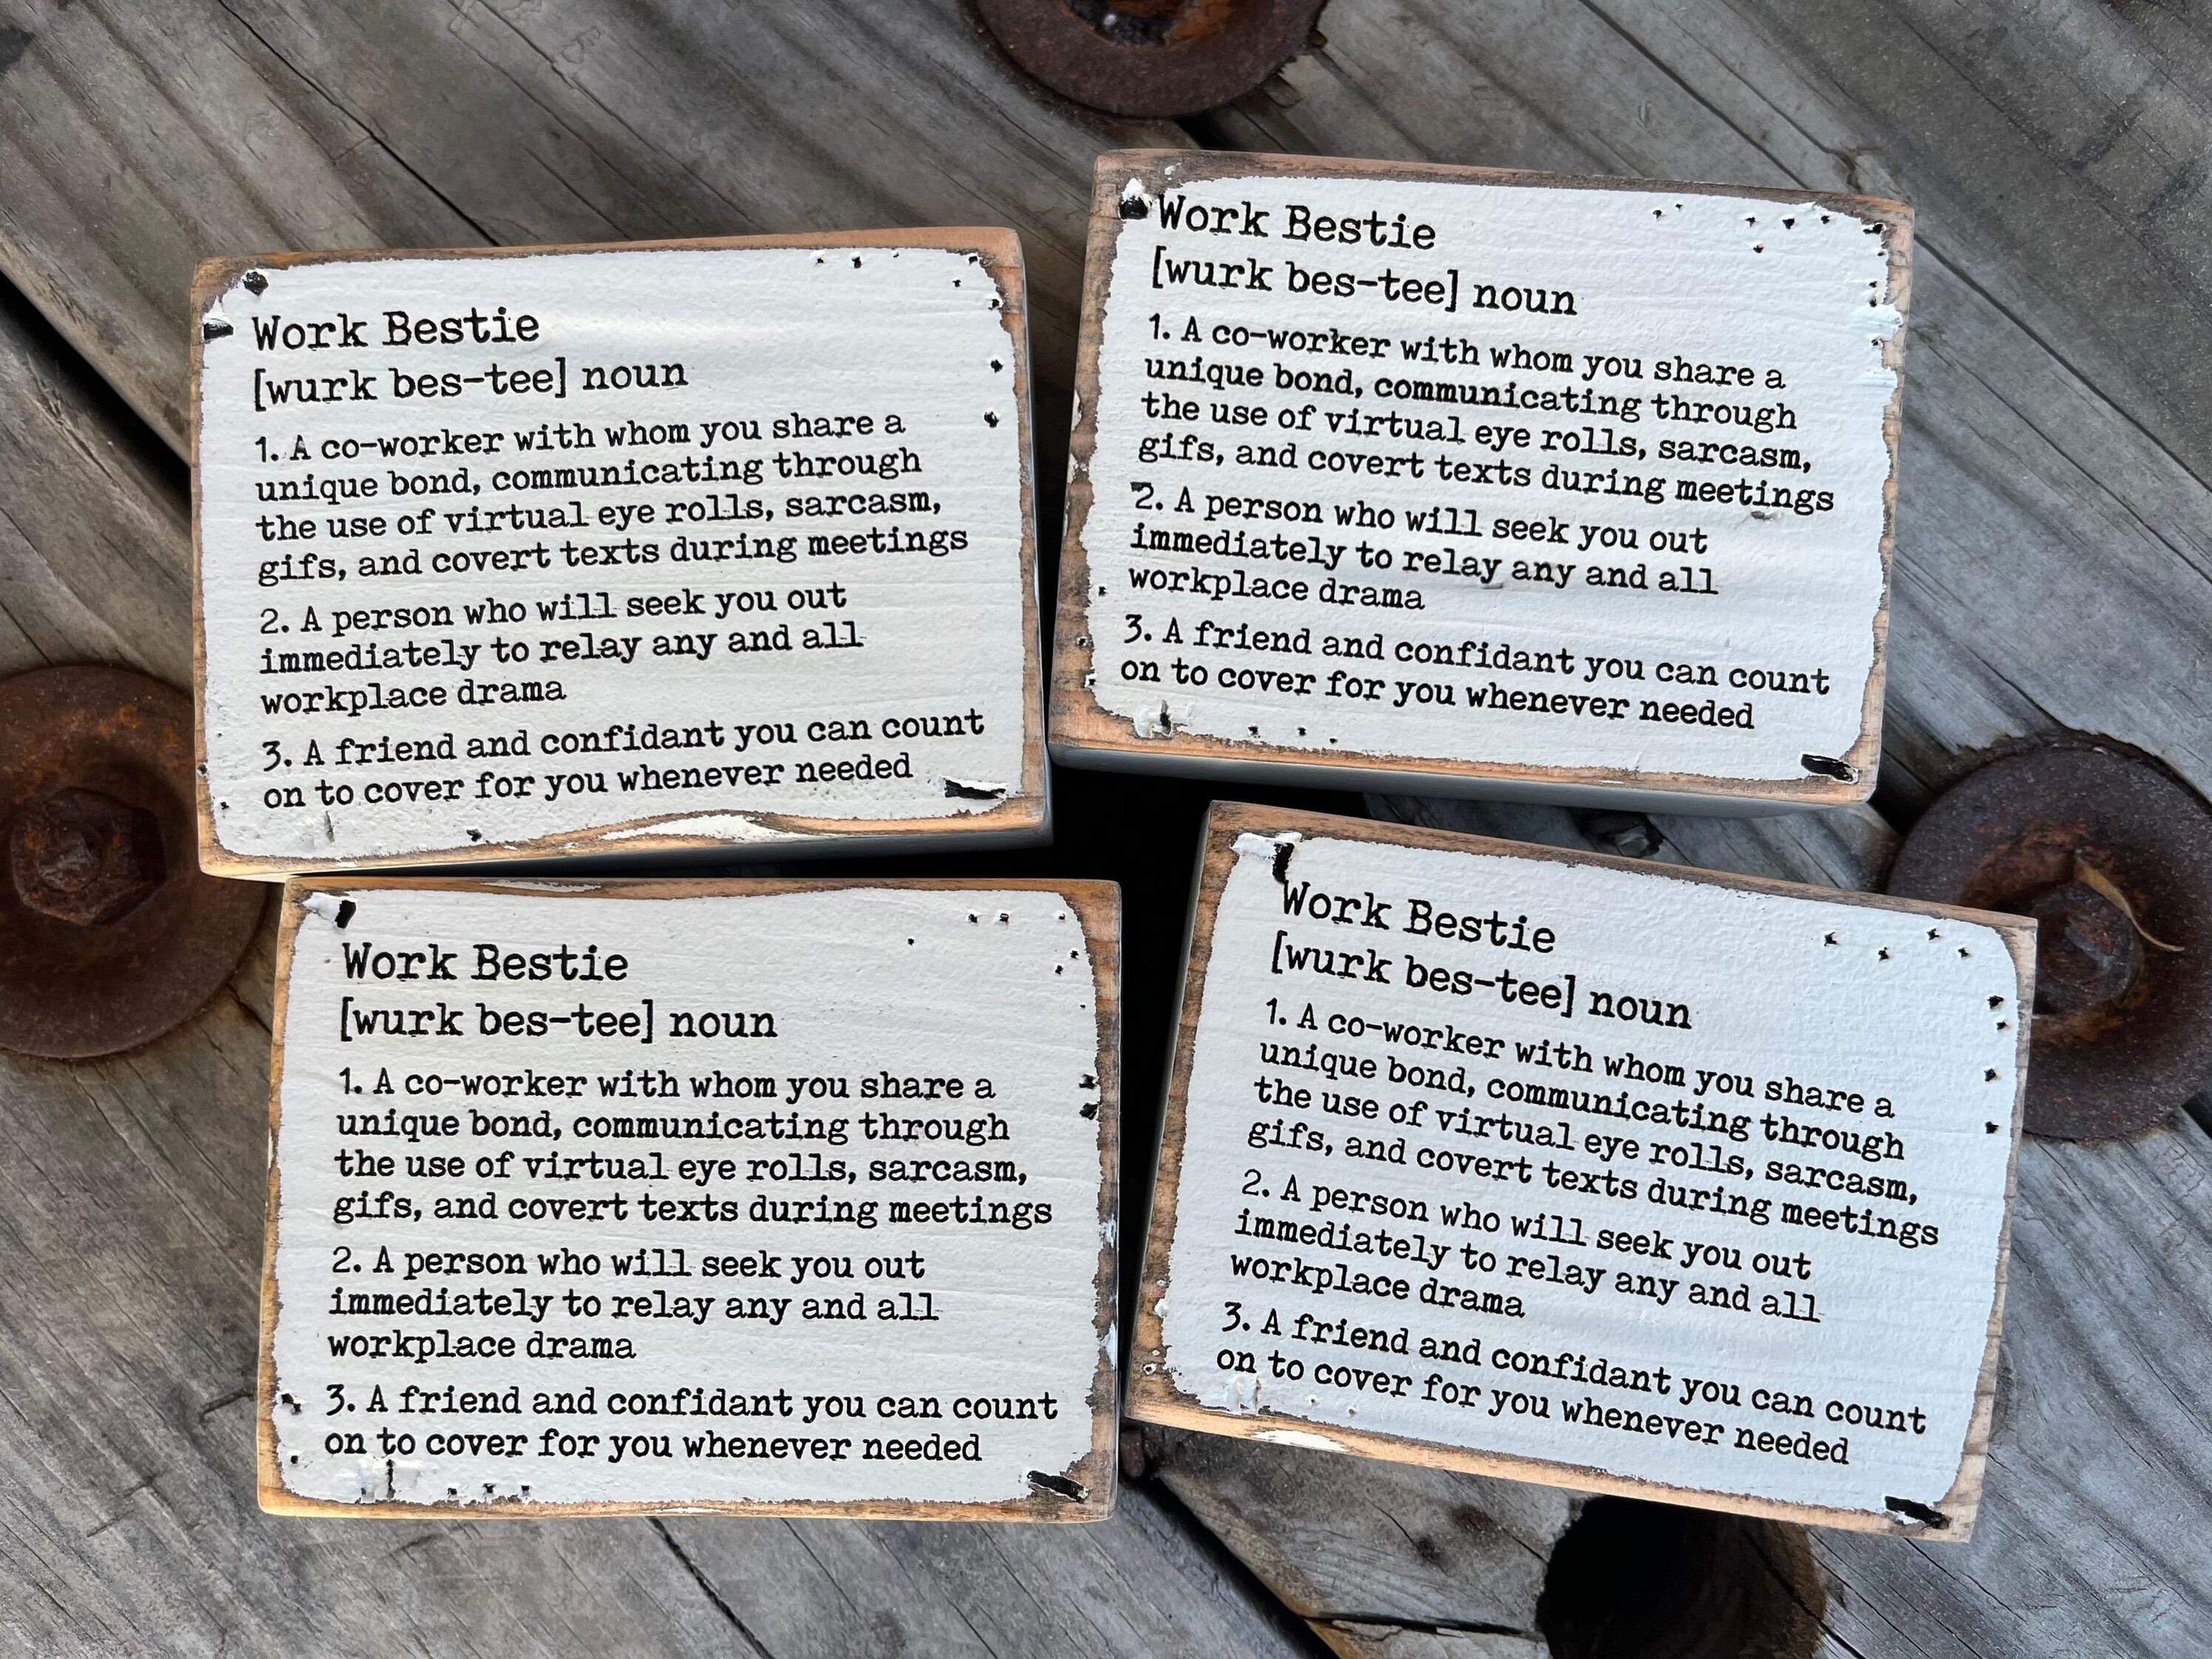 Work Bestie
[wurk bes-tee] noun
1. A co-worker with whom you share a
unique bond, communicating through
the use of virtual eye rolls, sarcasm,
gifs, and covert texts during meetings
2. A person who will seek you out
immediately to relay any and all
workplace drama
3. A friend and confidant you can count
on to cover for you whenever needed
Work Bestie
[wurk bes-tee] noun
1. A co-worker with whom you share a
unique bond, communicating through
the use of virtual eye rolls, sarcasm,
gifs, and covert texts during meetings
2. A person who will seek you out
immediately to relay any and all
workplace drama
3. A friend and confidant you can count
on to cover for you whenever needed
Work Bestie
[wurk bes-tee] noun
1. A co-worker with whom you share a
unique bond, communicating through
the use of virtual eye rolls, sarcasm,
gifs, and covert texts during meetings
2. A person who will seek you out
immediately to relay any and all
workplace drama
3. A friend and confidant you can count
on to cover for you whenever needed
Work Bestie
[wurk bes-tee] noun
1. A co-worker with whom you share a
unique bond, communicating through
the use of virtual eye rolls, sarcasm,
gifs, and covert texts during meetings
2. A person who will seek you out
immediately to relay any and all
workplace drama
3. A friend and confidant you can count
on to cover for you whenever needed